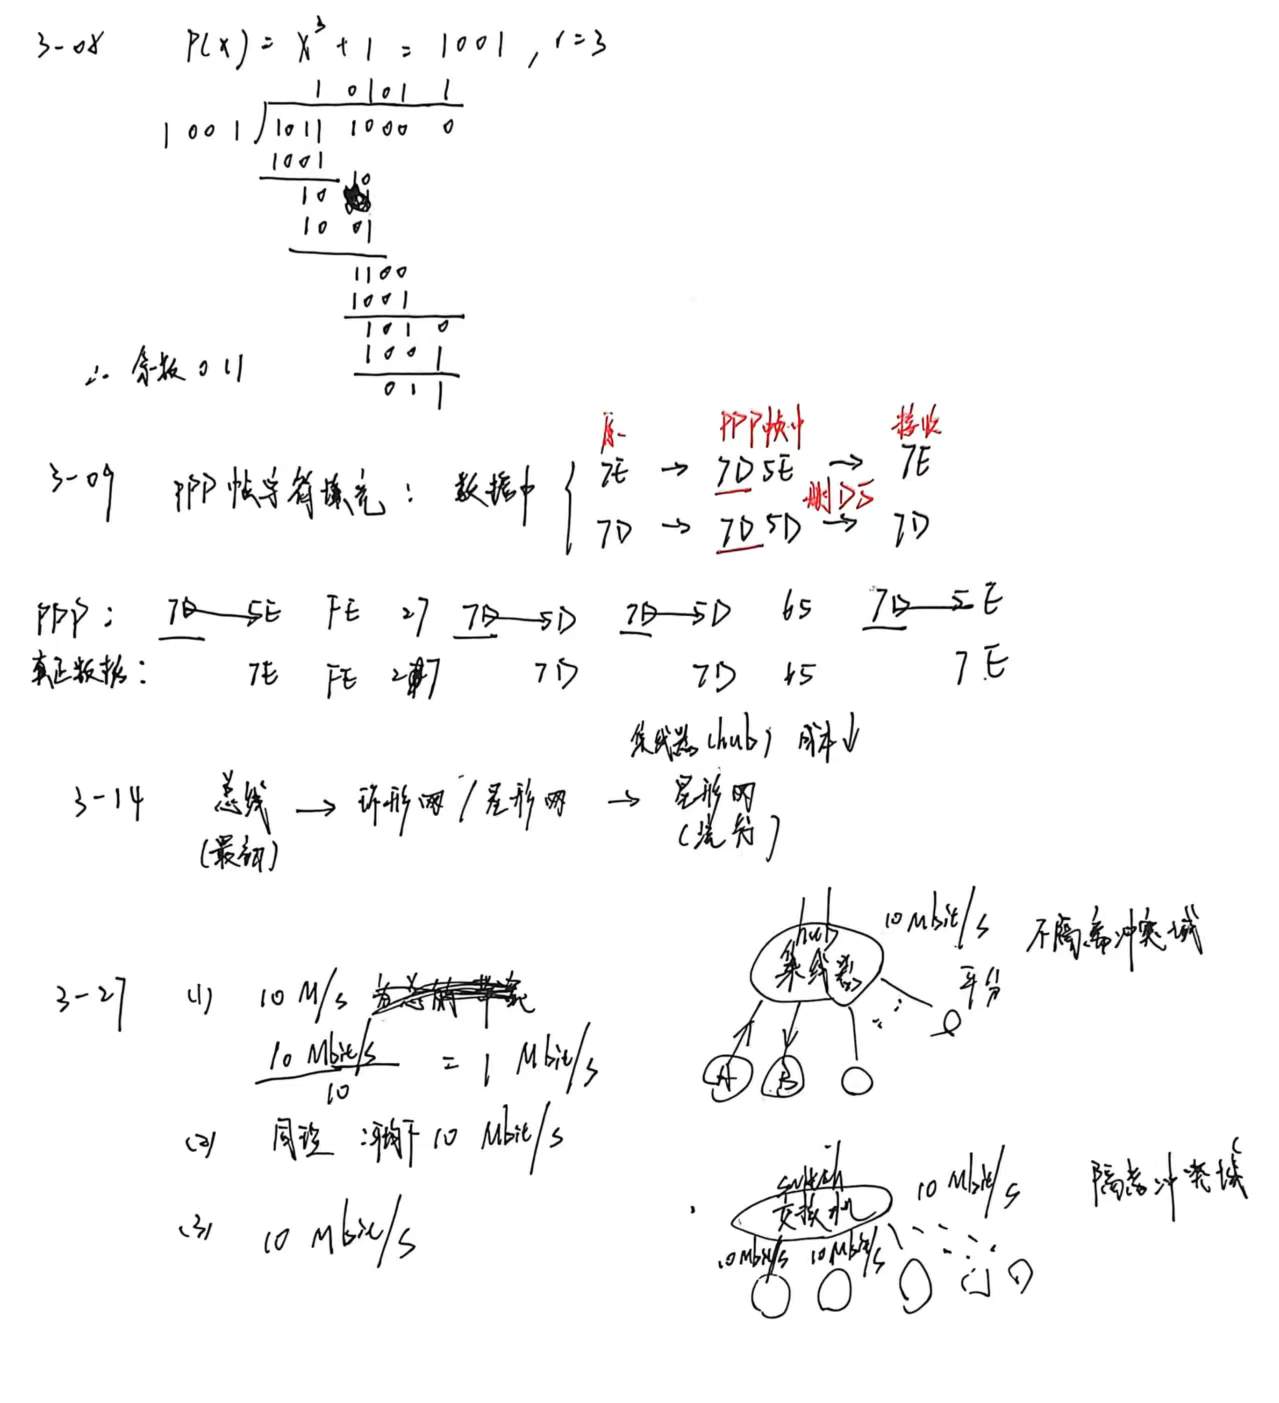 3-08 P(x) = x³ + 1 = 1001, r=3
1 0101 1
1001 1011 1000 0
1001
10 10
10 01
1100
1001
101 0
100 1
∴ 余数 011
01 1
原 PPP帧中 接收
7E → 7D 5E → 7E
3-09 PPP帧字符填充: 数据中
删 7D
7D → 7D 5D → 7D
PPP: 7D→5E FE 27 7D→5D 7D→5D 65 7D→5E
真正数据: 7E FE 27 7D 7D 65 7E
集线器(hub) 成本↓
3-14 总线 → 环形网/星形网 → 星形网
(最初)
hub 10 Mbit/s 不隔离冲突域
集线器
平分
3-27 (1) 10 M/s
10 Mbit/s = 1 Mbit/s
10
A B
(2) 同理: 10 Mbit/s
switch 10 Mbit/s 隔离冲突域
交换机
(3) 10 Mbit/s
10Mbit/s 10Mbit/s